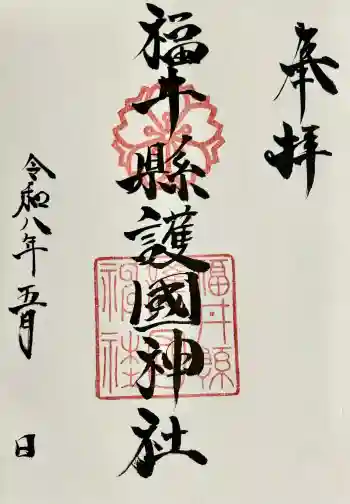 奉拝
福井縣護國神社
福井縣護國神社
令和八年五月 日